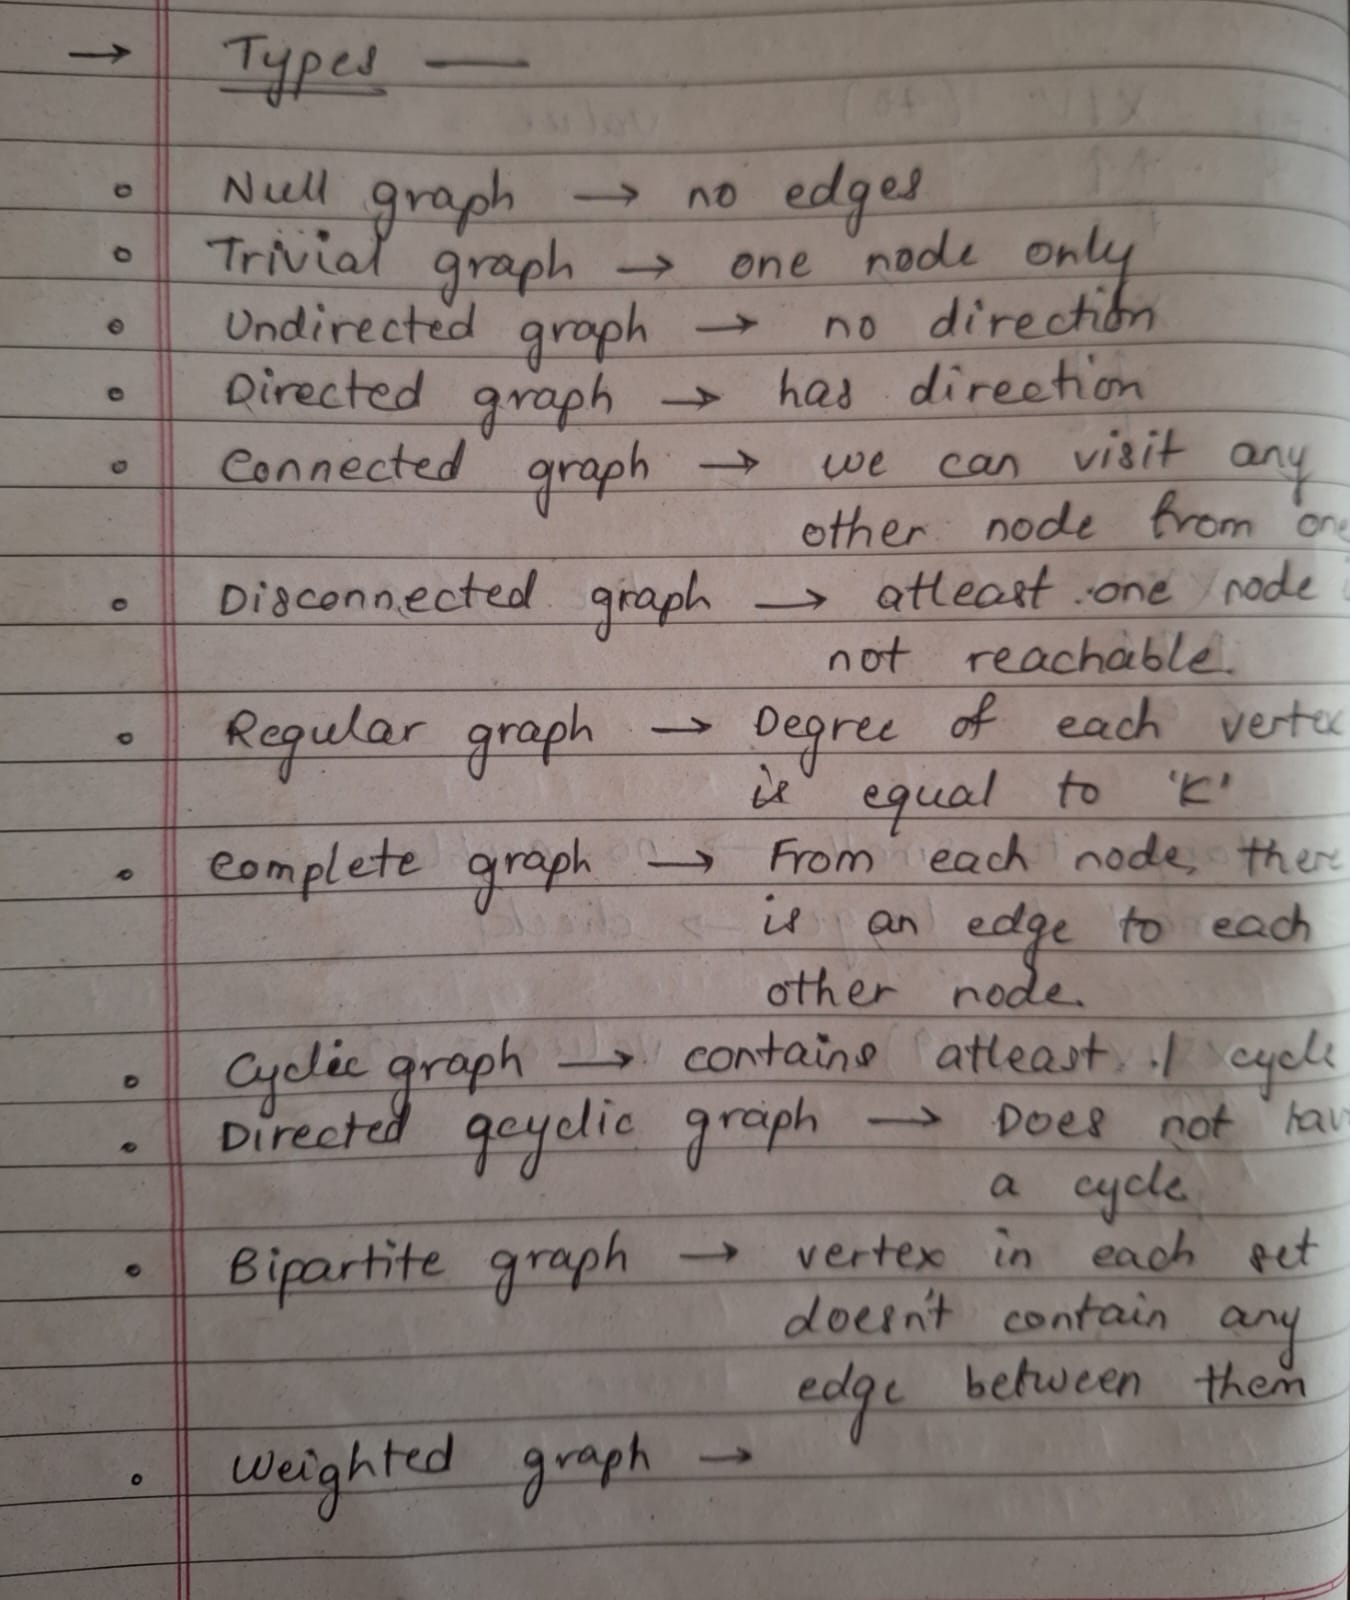 → Types —
• Null graph → no edges
• Trivial graph → one node only
• Undirected graph → no direction
• Directed graph → has direction
• Connected graph → we can visit any
other node from one
• Disconnected graph → atleast one node
not reachable.
• Regular graph → Degree of each vertex
is equal to 'K'
• complete graph → From each node, there
is an edge to each
other node.
• Cyclic graph → contains atleast 1 cycle
• Directed acyclic graph → Does not hav
a cycle
• Bipartite graph → vertex in each set
doesn't contain any
edge between them
• Weighted graph →